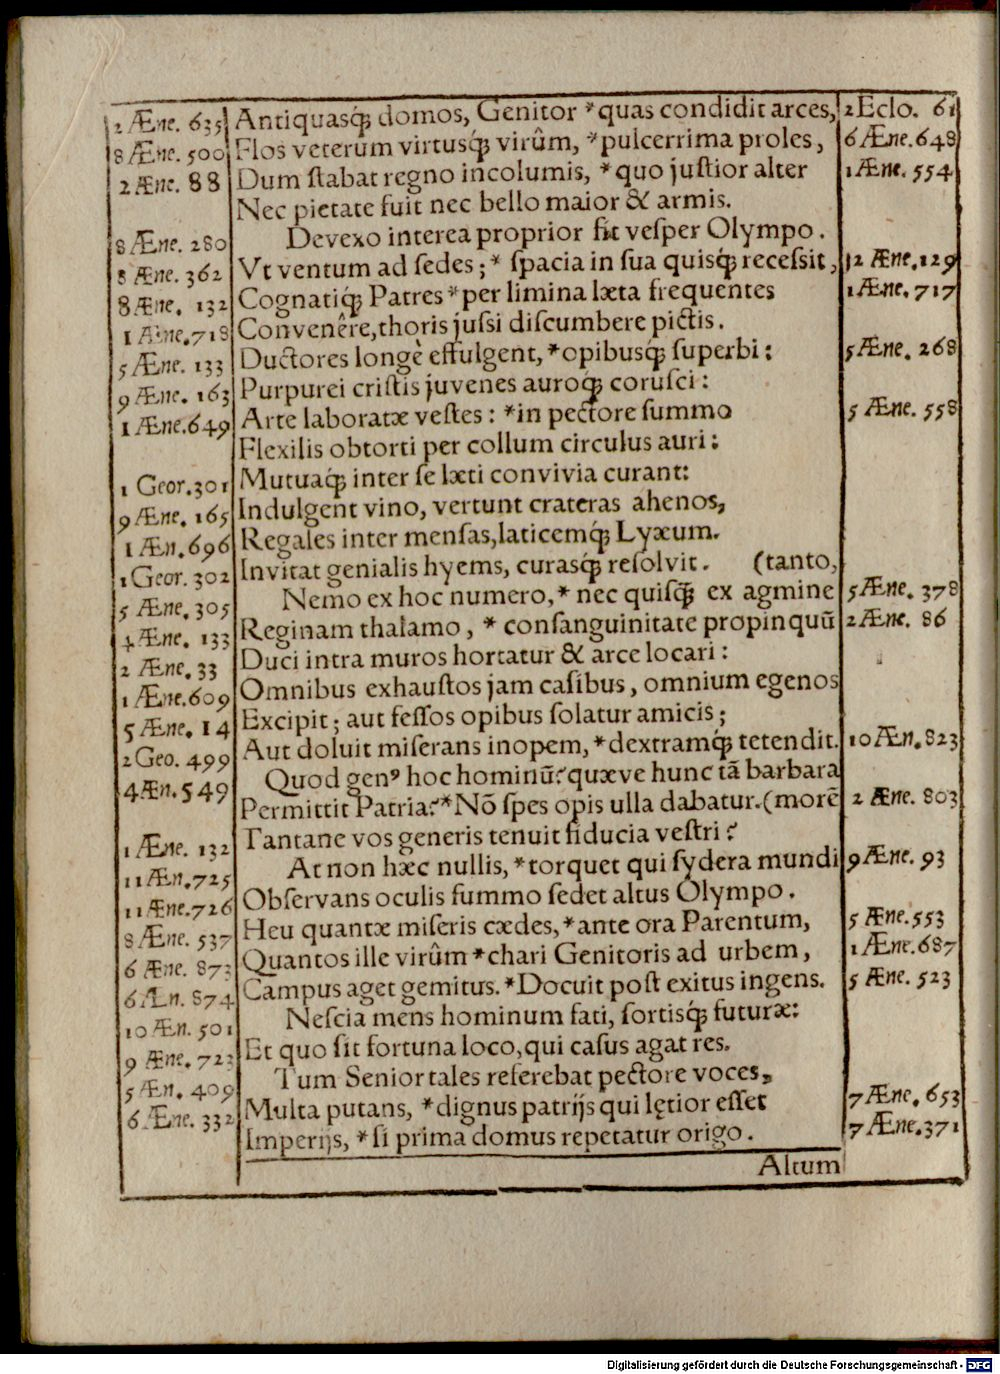 2 Æne. 635 Antiquasq́ꝫ domos, Genitor *quas condidit arces, 2 Eclo. 61
8 Æne. 500 Flos veterum virtusq́ꝫ virûm, *pulcerrima proles, 6 Æne. 648
2 Æne. 88 Dum ſtabat regno incolumis, *quo juſtior alter 1 Æne. 554
Nec pietate fuit nec bello maior & armis.
8 Æne. 280 Devexo interea proprior fit veſper Olympo.
8 Æne. 362 Vt ventum ad ſedes; * ſpacia in ſua quisq́ꝫ receſſit, 12 Æne. 129
8 Æne. 132 Cognatiq́ꝫ Patres *per limina læta frequentes 1 Æne. 717
1 Æne. 718 Convenêre, thoris juſsi diſcumbere pictis.
5 Æne. 133 Ductores longè effulgent, *opibusq́ꝫ ſuperbi: 5 Æne. 268
9 Æne. 163 Purpurei criſtis juvenes auroq́ꝫ coruſci:
1 Æne. 649 Arte laboratæ veſtes: *in pectore ſummo 5 Æne. 558
Flexilis obtorti per collum circulus auri:
1 Geor. 301 Mutuaq́ꝫ inter ſe læti convivia curant:
9 Æne. 165 Indulgent vino, vertunt crateras ahenos,
1 Æn. 696 Regales inter menſas, laticemq́ꝫ Lyæum.
1 Geor. 302 Invitat genialis hyems, curasq́ꝫ reſolvit. (tanto,
5 Æne. 305 Nemo ex hoc numero, * nec quiſq́ꝫ ex agmine 5 Æne. 378
4 Æne. 133 Reginam thalamo, * conſanguinitate propinquū 2 Æne. 86
2 Æne. 33 Duci intra muros hortatur & arce locari:
1 Æne. 609 Omnibus exhauſtos jam caſibus, omnium egenos
5 Æne. 14 Excipit; aut feſſos opibus ſolatur amicis;
2 Geo. 499 Aut doluit miſerans inopem, *dextramq́ꝫ tetendit. 10 Æn. 823
4 Æn. 549 Quod genꝰ hoc hominū? quæve hunc tā barbara
Permittit Patria? *Nō ſpes opis ulla dabatur. (morē 2 Æne. 803
1 Æne. 132 Tantane vos generis tenuit fiducia veſtri?
11 Æn. 725 At non hæc nullis, *torquet qui ſydera mundi 9 Æne. 93
11 Æne. 726 Obſervans oculis ſummo ſedet altus Olympo.
8 Æne. 537 Heu quantæ miſeris cædes, *ante ora Parentum, 5 Æne. 553
6 Æne. 873 Quantos ille virûm *chari Genitoris ad urbem, 1 Æne. 687
6 Æn. 874 Campus aget gemitus. *Docuit poſt exitus ingens. 5 Æne. 523
10 Æn. 501 Neſcia mens hominum fati, ſortisq́ꝫ futuræ:
9 Æne. 723 Et quo ſit fortuna loco, qui caſus agat res.
5 Æn. 409 Tum Senior tales referebat pectore voces,
6 Æne. 332 Multa putans, *dignus patrijs qui lętior eſſet 7 Æne. 653
Imperijs, *ſi prima domus repetatur origo. 7 Æne. 371
Altum
Digitalisierung gefördert durch die Deutsche Forschungsgemeinschaft - DFG